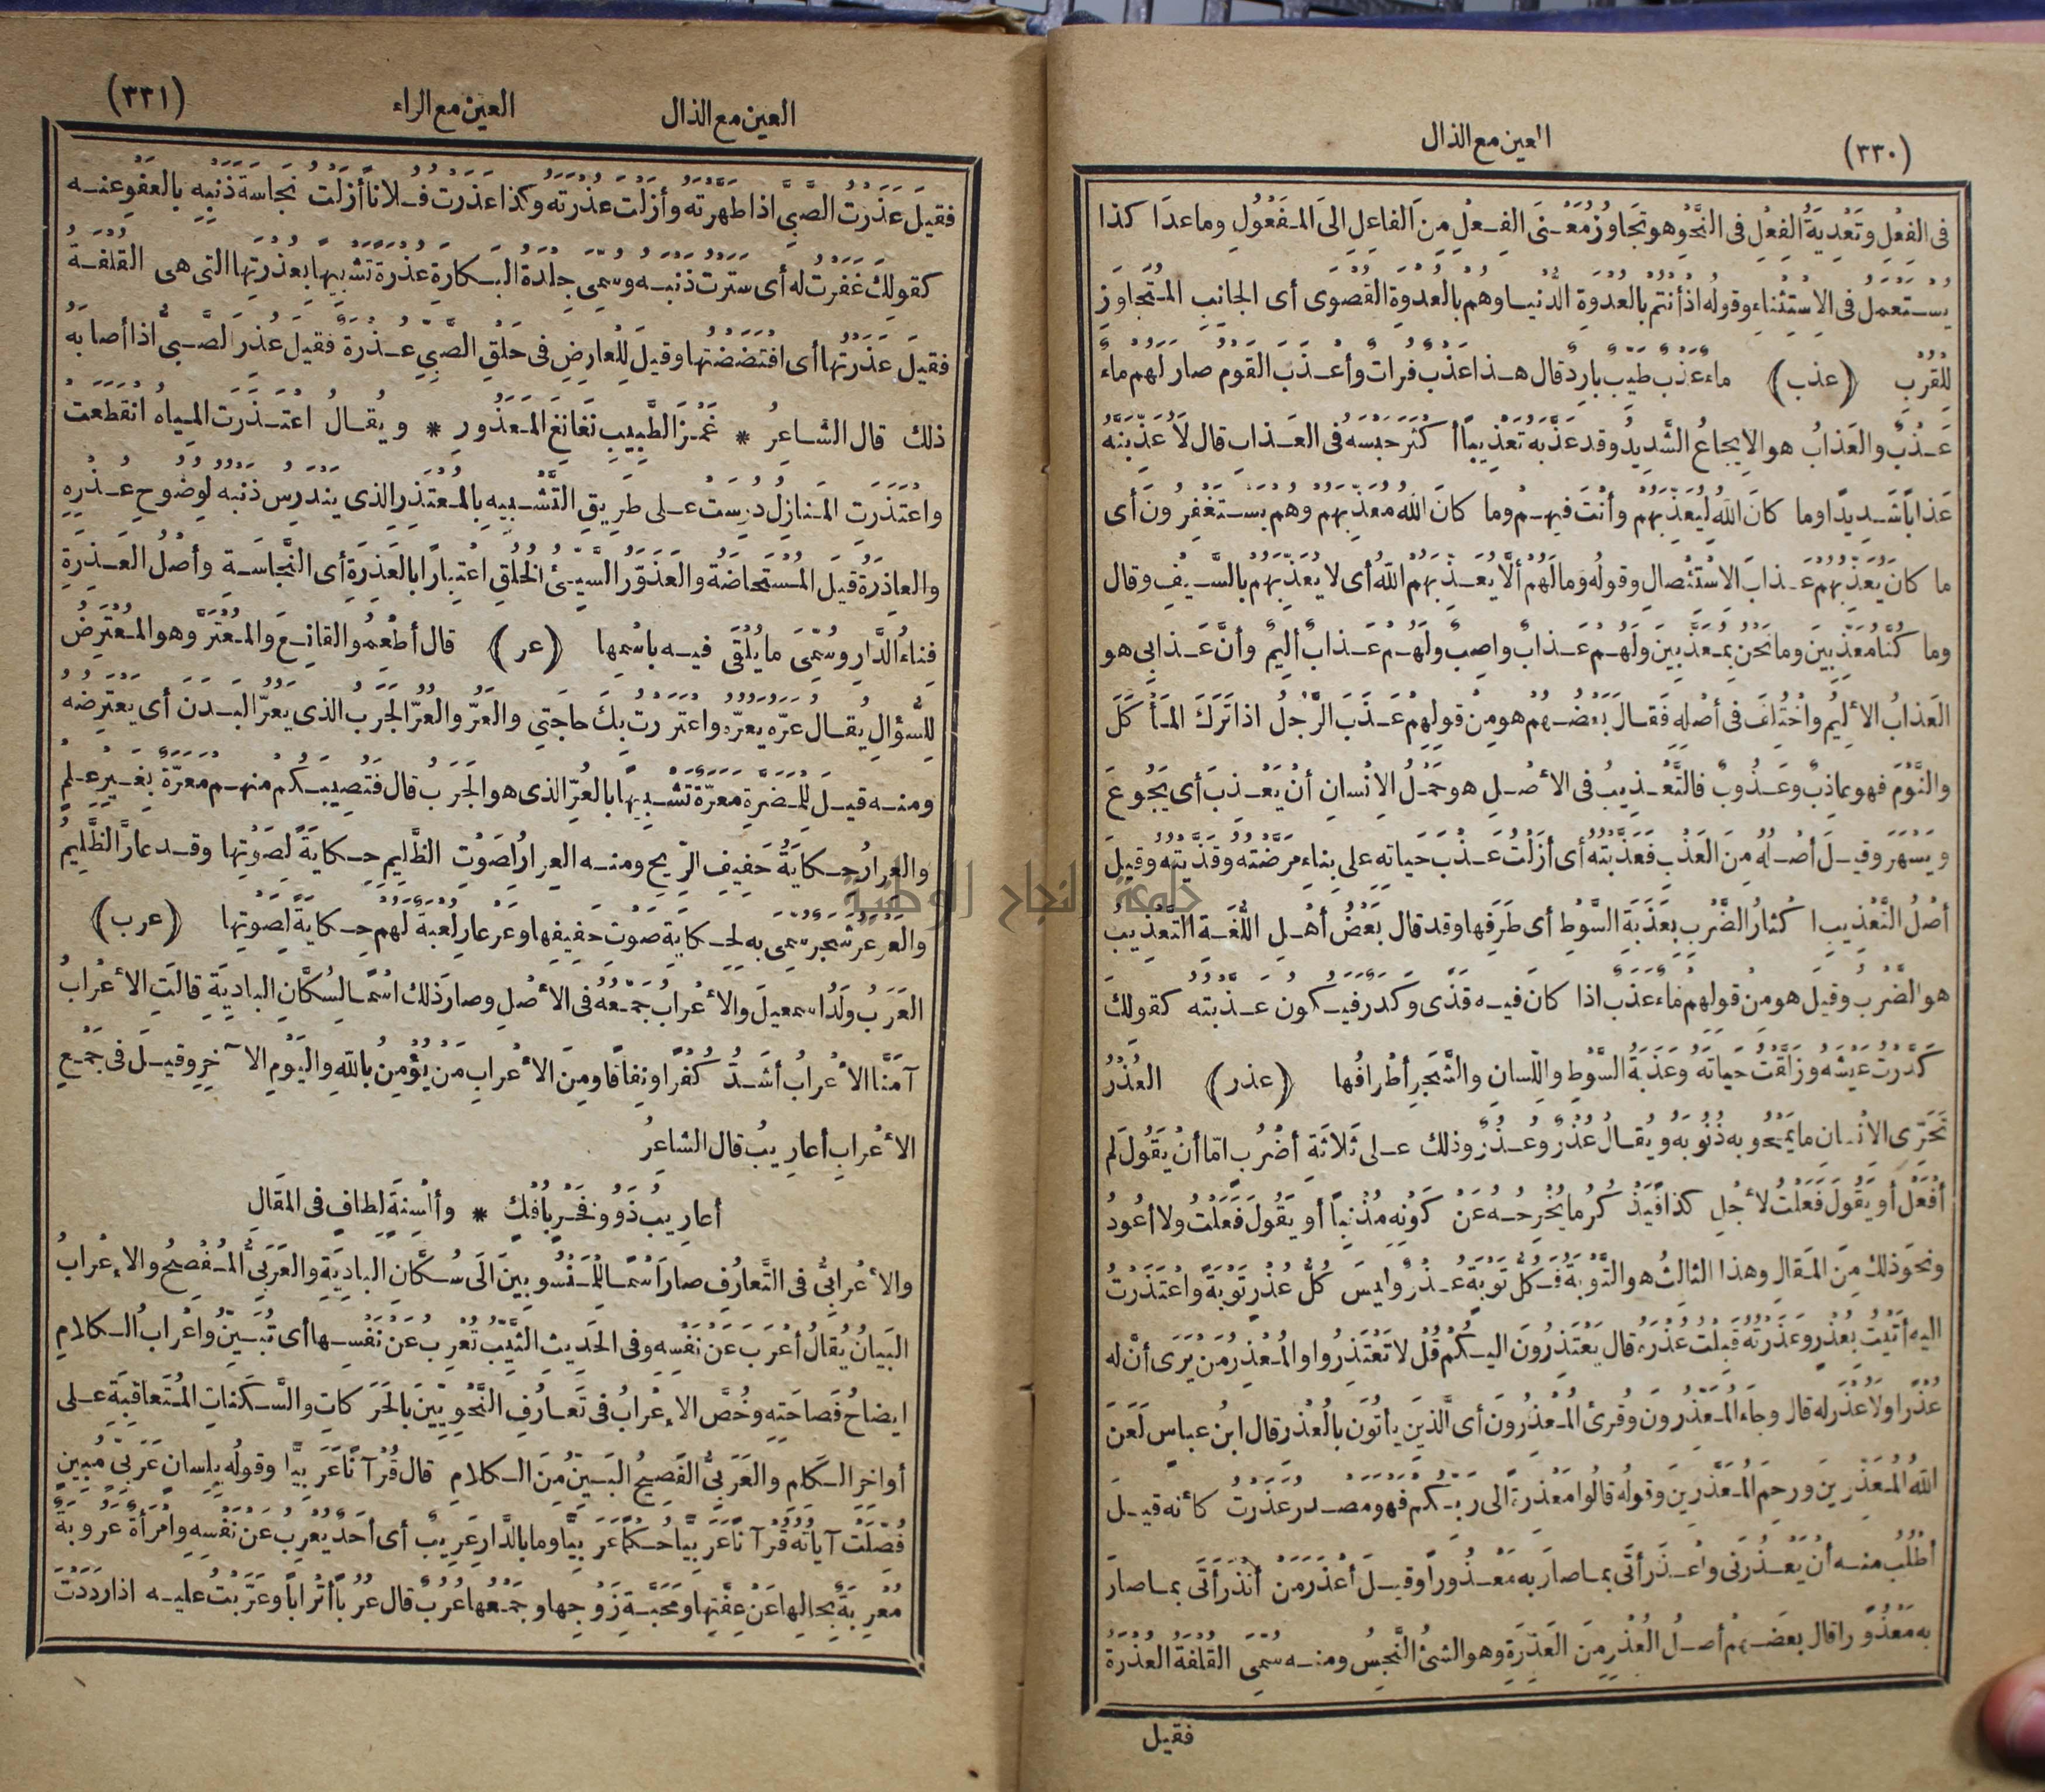 (٣٣٠)
العين مع الذال
فى الفِعْلِ وتَعْدِيَةُ الفِعْلِ فى النَّحْوِ هو تَجاوُزُ مَعْنَى الفِعْلِ مِنَ الفاعِلِ الى المَفْعُولِ وما عدَا كذا
يُسْتَعْمَلُ فى الاِسْتِثْناءِ وقولُه اذ أنتم بالعُدْوَةِ الدُّنيا وهم بالعُدْوَةِ القُصْوَى أى الجانِبِ المُتَجاوِزِ
لِلْقُرْبِ (عذب) ماءٌ عَذْبٌ طَيِّبٌ بارِدٌ قال هذا عَذْبٌ فُراتٌ وأعْذَبَ القَوْمُ صارَ لَهُم ماءٌ
عَذْبٌ والعَذابُ هو الايجاعُ الشَّدِيدُ وقد عَذَّبَهُ تَعْذِيبًا أكثَرَ حَبْسَهُ فى العَذابِ قال لَأُعَذِّبَنَّهُ
عَذابًا شَدِيدًا وما كانَ اللهُ لِيُعَذِّبَهُم وأنْتَ فيهِم وما كانَ اللهُ مُعَذِّبَهُم وهُم يَسْتَغْفِرُونَ أى
ما كانَ يُعَذِّبُهُم عَذابَ الاسْتِئْصالِ وقولُه وما لَهُم ألَّا يُعَذِّبَهُم اللهُ أى لا يُعَذِّبُهُم بالسَّيْفِ وقال
وما كُنَّا مُعَذِّبِينَ وما نَحْنُ بِمُعَذَّبِينَ ولَهُم عَذابٌ واصِبٌ ولَهُم عَذابٌ أليمٌ وأنَّ عَذابِى هو
العَذابُ الأَلِيمُ واخْتُلِفَ فى أصْلِهِ فَقالَ بَعْضُهُم هو مِنْ قولِهِم عَذَبَ الرَّجُلُ اذا تَرَكَ المَأْكَلَ
والنَّوْمَ فهو عاذِبٌ وعَذُوبٌ فالتَّعْذِيبُ فى الأَصْلِ هو حَمْلُ الاِنْسانِ أنْ يَعْذِبَ أى يَجُوعَ
ويَسْهَرَ وقيلَ أصْلُهُ مِنَ العَذْبِ فَعَذَّبْتُهُ أى أزَلْتُ عَذْبَ حَياتِهِ على بِناءِ مَرَّضْتُهُ وقَذَّيْتُهُ وقيلَ
أصْلُ التَّعْذِيبِ اكْثارُ الضَّرْبِ بِعَذَبَةِ السَّوْطِ أى طَرَفِها وقد قال بَعْضُ أهْلِ اللُّغَةِ التَّعْذِيبُ
هو الضَّرْبُ وقيلَ هو من قولِهِم ماءٌ عَذَبٌ اذا كانَ فيه قَذًى وكَدَرٌ فيكونُ عَذَّبْتُهُ كقولِكَ
كَدَّرْتُ عَيْشَهُ وزَلَّقْتُ حَياتَهُ وعَذَبَةُ السَّوْطِ واللِّسانِ والشَّجَرِ أطْرافُها (عذر) العُذْرُ
تَحَرِّى الاِنْسانِ ما يَمْحُو به ذُنُوبَهُ ويُقالُ عُذْرٌ وعُذُرٌ وذلك على ثَلاثَةِ أضْرُبٍ امَّا أنْ يَقُولَ لم
أفْعَلْ أو يَقُولَ فَعَلْتُ لأَجْلِ كذا فَيَذْكُرُ ما يُخْرِجُهُ عَنْ كَوْنِهِ مُذْنِبًا أو يَقُولَ فَعَلْتُ ولا أعُودُ
ونحوَ ذلك مِنَ المَقالِ وهذا الثالِثُ هو التَّوْبَةُ فَكُلُّ تَوْبَةٍ عُذْرٌ وليسَ كُلُّ عُذْرٍ تَوْبَةً واعْتَذَرْتُ
اليه أتَيْتُ بِعُذْرٍ وعَذَرْتُهُ قَبِلْتُ عُذْرَهُ قال يَعْتَذِرُونَ اليكُمْ قُلْ لا تَعْتَذِرُوا والمُعْذِرُ مَن يَرَى أنَّ له
عُذْرًا ولا عُذْرَ له قال وجاءَ المُعَذِّرُونَ وقُرِئَ المُعْذِرُونَ أى الَّذِينَ يأتُونَ بالعُذْرِ قال ابنُ عباسٍ لَعَنَ
اللهُ المُعَذِّرِينَ ورَحِمَ المُعَذَّرِينَ وقولُه قالُوا مَعْذِرَةً الى رَبِّكُم فهو مصدرُ عَذَرْتُ كأنه قيلَ
أطْلُبُ منه أنْ يَعْذُرَنِى وأعْذَرَ أتَى بما صارَ به مَعْذُورًا وقيلَ أعْذَرَ مَنْ أنْذَرَ أتَى بما صارَ
به مَعْذُورًا قال بعضُهُم أصْلُ العُذْرِ مِنَ العَذِرَةِ وهو الشئُ النَّجِسُ ومنه سُمِّىَ القُلْفَةُ العُذْرَةُ
فقيل
العين مع الذال
العين مع الراء
(٣٣١)
فقيلَ عَذَرْتُ الصَّبِىَّ اذا طَهَّرْتَه وأزَلْتَ عُذْرَتَه وكذا عَذَرْتُ فُلانًا أزَلْتُ نَجاسَةَ ذَنْبِهِ بالعَفْوِ عنه
كقولِكَ غَفَرْتُ له أى سَتَرْتُ ذنبَه وسُمِّىَ جِلْدَةُ البَكارَةِ عُذْرَةً تَشْبِيهًا بعُذْرَتِها التى هى القُلْفَةُ
فقيلَ عَذَرْتُها أى افْتَضَضْتُها وقيلَ لِلْعارِضِ فى حَلْقِ الصَّبِىِّ عُذْرَةٌ فَقيلَ عُذِرَ الصَّبِىُّ اذا أصابَهُ
ذلك قال الشاعِرُ * غَمْزَ الطَّبِيبِ نَغانِغَ المَعْذُورِ * ويُقالُ اعْتَذَرَت المِياهُ انقطعت
واعْتَذَرَتِ المَنازِلُ دُرِسَتْ على طَرِيقِ التَّشْبِيهِ بالمُعْتَذِرِ الذى يندرِسُ ذنبُه لِوُضُوحِ عُذْرِهِ
والعاذِرَةُ قيلَ المُسْتَحاضَةُ والعَذَوَّرُ السَّيِّئُ الخُلُقِ اعْتِبارًا بالعَذِرَةِ أى النَّجاسَةِ وأصْلُ العَذِرَةِ
فِناءُ الدَّارِ وسُمِّىَ ما يُلْقَى فيه باسْمِها (عر) قال أطْعِمُوا القانِعَ والمُعْتَرَّ وهو المُعْتَرِضُ
لِلسُّؤالِ يُقالُ عَرَّهُ يَعُرُّهُ واعْتَرَرْتُ بِكَ حاجَتِى والعَرُّ والعُرُّ الجَرَبُ الذى يَعُرُّ البَدَنَ أى يَعْتَرِضُهُ
ومنه قيلَ لِلْمَضَرَّةِ مَعَرَّةٌ تَشْبِيهًا بالعُرِّ الذى هو الجَرَبُ قال فَتُصِيبَكُمْ منهم مَعَرَّةٌ بِغَيْرِ عِلْمٍ
والعِرارُ حِكايَةُ حَفِيفِ الرِّيحِ ومنه العِرارُ لِصَوْتِ الظَّلِيمِ حِكايَةً لِصَوْتِها وقد عارَّ الظَّلِيمُ
والعَرْعَرُ شَجَرٌ سُمِّىَ به لحكايَةِ صَوْتِ حَفِيفِها وعَرْعارِ لُعْبَةٌ لَهُم حِكايَةً لِصَوْتِها (عرب)
العَرَبُ ولَدُ اسمعيلَ والأَعْرابُ جَمْعُهُ فى الأَصْلِ وصارَ ذلك اسْمًا لِسُكَّانِ البادِيَةِ قالَتِ الأَعْرابُ
آمَنَّا الأَعْرابُ أشَدُّ كُفْرًا ونِفاقًا ومِنَ الأَعْرابِ مَنْ يُؤْمِنُ باللهِ واليَوْمِ الآخِرِ وقيلَ فى جَمْعِ
الأَعْرابِ أعارِيبُ قال الشاعِرُ
أعارِيبُ ذَوُو فَخْرٍ بِافْكٍ * وألْسِنَةٍ لِطافٍ فى المَقالِ
والأَعْرابِىُّ فى التَّعارُفِ صارَ اسْمًا لِلْمَنْسُوبِينَ الَى سُكَّانِ البادِيَةِ والعَرَبِىُّ المُفْصِحُ والاِعْرابُ
البَيانُ يُقالُ أعْرَبَ عَنْ نَفْسِهِ وفى الحَدِيثِ الثَّيِّبُ تُعْرِبُ عَنْ نَفْسِها أى تُبَيِّنُ واعْرابُ الكلامِ
ايضاحُ فَصاحَتِهِ وخُصَّ الاِعْرابُ فى تَعارُفِ النَّحْوِيِّينَ بالحَرَكاتِ والسَّكَناتِ المُتَعاقِبَةِ على
أواخِرِ الكَلامِ والعَرَبِىُّ الفَصِيحُ البَيِّنُ مِنَ الكلامِ قال قُرْآنًا عَرَبِيًّا وقولُه بِلِسانٍ عَرَبِىٍّ مُبِينٍ
فُصِّلَتْ آياتُهُ قُرْآنًا عَرَبِيًّا حُكْمًا عَرَبِيًّا وما بالدَّارِ عَرِيبٌ أى أحَدٌ يُعْرِبُ عَنْ نَفْسِهِ وامْرَأةٌ عَرُوبَةٌ
مُعْرِبَةٌ بِحالِها عَنْ عِفَّتِها ومَحَبَّةِ زَوْجِها وجَمْعُها عُرُبٌ قال عُرُبًا أتْرابًا وعَرَّبْتُ عليه اذا رَدَدْتَ
جامعة النجاح الوطنية